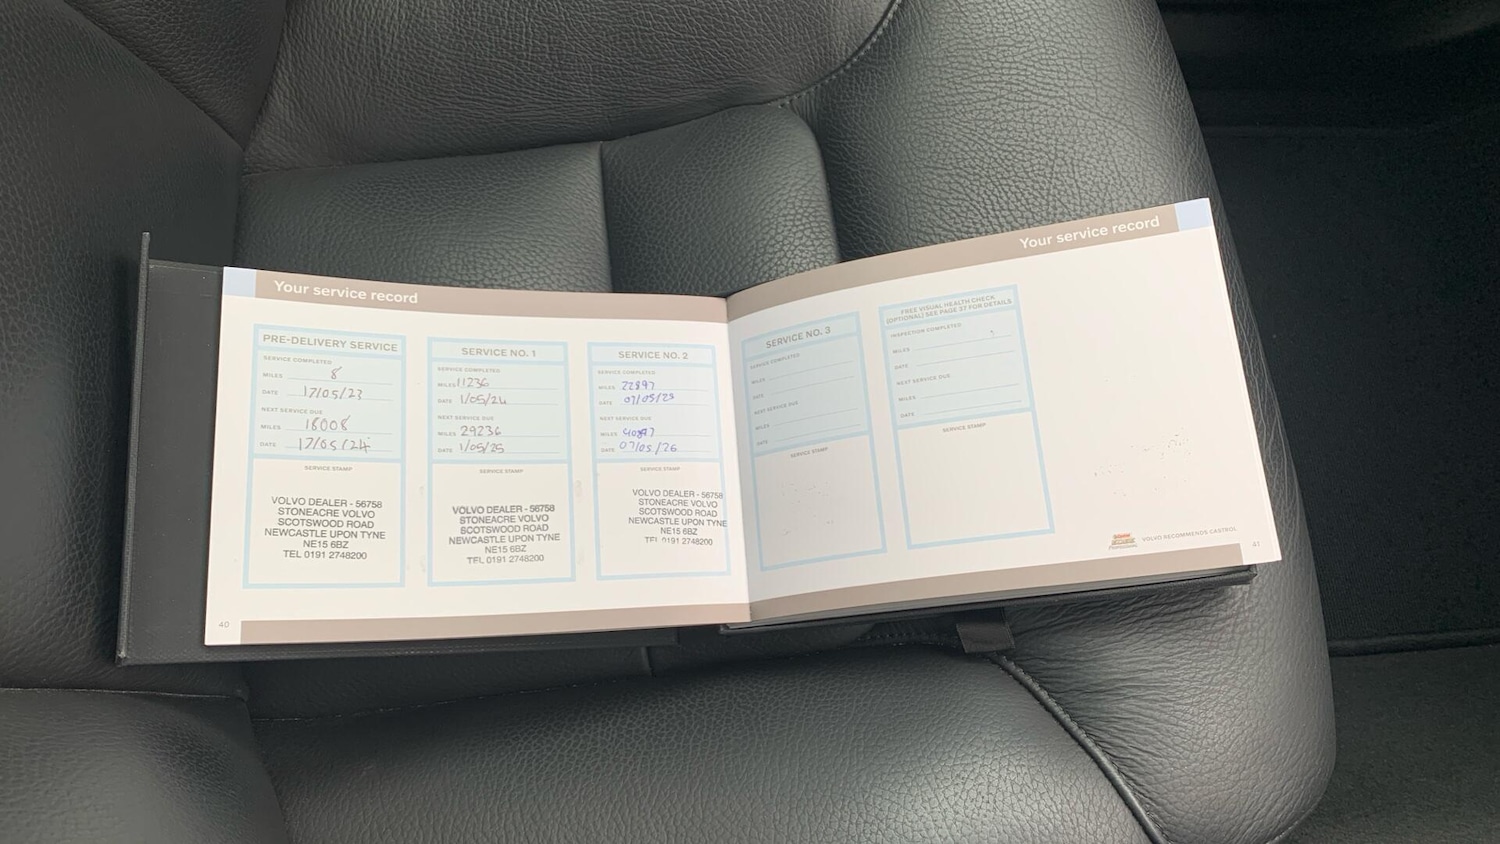 Your service record
PRE-DELIVERY SERVICE
SERVICE COMPLETED
MILES 8
DATE 17/05/23
NEXT SERVICE DUE
MILES 18008
DATE 17/05/24
SERVICE STAMP
VOLVO DEALER - 56758
STONEACRE VOLVO
SCOTSWOOD ROAD
NEWCASTLE UPON TYNE
NE15 6BZ
TEL 0191 2748200
SERVICE NO. 1
SERVICE COMPLETED
MILES 11236
DATE 1/05/24
NEXT SERVICE DUE
MILES 29236
DATE 1/05/25
SERVICE STAMP
VOLVO DEALER - 56758
STONEACRE VOLVO
SCOTSWOOD ROAD
NEWCASTLE UPON TYNE
NE15 6BZ
TEL 0191 2748200
SERVICE NO. 2
SERVICE COMPLETED
MILES 22897
DATE 07/05/25
NEXT SERVICE DUE
MILES
DATE 07/05/26
SERVICE STAMP
VOLVO DEALER - 56758
STONEACRE VOLVO
SCOTSWOOD ROAD
NEWCASTLE UPON TYNE
NE15 6BZ
TEL 0191 2748200
40
Your service record
SERVICE NO. 3
SERVICE COMPLETED
MILES
DATE
NEXT SERVICE DUE
MILES
DATE
SERVICE STAMP
FREE VISUAL HEALTH CHECK
(OPTIONAL) SEE PAGE 37 FOR DETAILS
INSPECTION COMPLETED
MILES
DATE
NEXT SERVICE DUE
MILES
DATE
SERVICE STAMP
VOLVO RECOMMENDS CASTROL
41